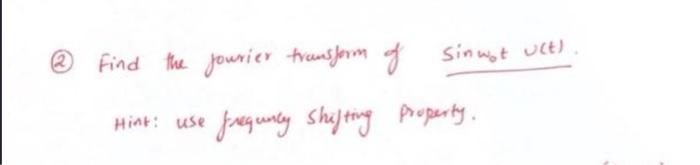 ② Find the fourier transform of Sinω₀t u(t).
Hint: use frequncy Shifting Property.